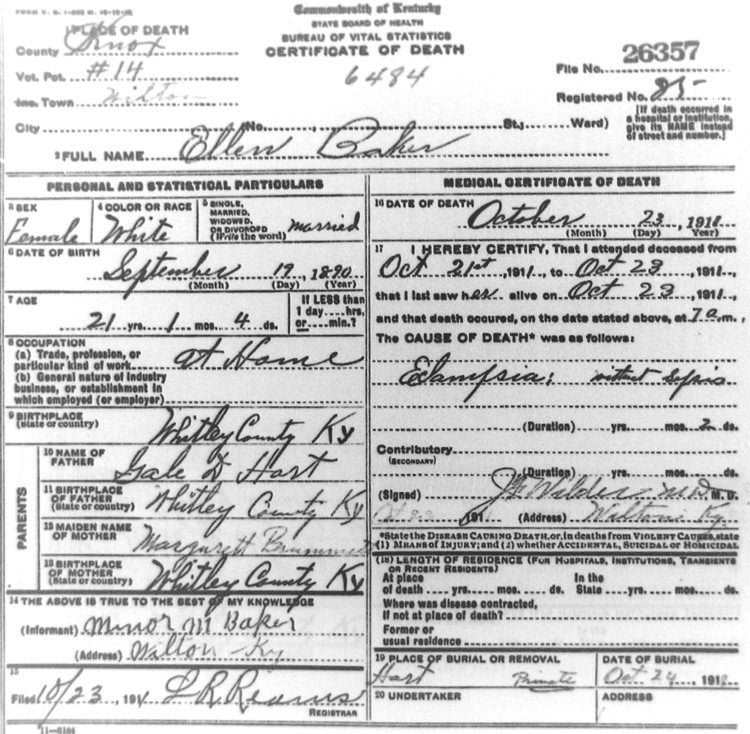 Commonwealth of Kentucky
STATE BOARD OF HEALTH
BUREAU OF VITAL STATISTICS
CERTIFICATE OF DEATH
1 PLACE OF DEATH
County Knox
Vot. Pct. #14
Inc. Town Wilton
6484
File No. 26357
Registered No. 85-
City (No. , St.; Ward)
[If death occurred in a hospital or institution, give its NAME instead of street and number.]
2 FULL NAME Ellen Baker
PERSONAL AND STATISTICAL PARTICULARS
3 SEX Female
4 COLOR OR RACE White
5 SINGLE, MARRIED, WIDOWED, OR DIVORCED (Write the word) married
6 DATE OF BIRTH
September 19, 1890
(Month) (Day) (Year)
7 AGE
21 yrs. 1 mos. 4 ds.
If LESS than 1 day....hrs. or....min.?
8 OCCUPATION
(a) Trade, profession, or particular kind of work at Home
(b) General nature of industry business, or establishment in which employed (or employer)
9 BIRTHPLACE (State or country) Whitley County Ky
PARENTS
10 NAME OF FATHER Gale D Hart
11 BIRTHPLACE OF FATHER (State or country) Whitley County Ky
12 MAIDEN NAME OF MOTHER Margarett
13 BIRTHPLACE OF MOTHER (State or country) Whitley County Ky
14 THE ABOVE IS TRUE TO THE BEST OF MY KNOWLEDGE
(Informant) Minor M Baker
(Address) Wilton Ky
15
Filed 10/23, 191 Reams
REGISTRAR
11-6184
MEDICAL CERTIFICATE OF DEATH
16 DATE OF DEATH
October 23, 1911
(Month) (Day) (Year)
17 I HEREBY CERTIFY, That I attended deceased from
Oct 21st, 1911, to Oct 23, 1911,
that I last saw her alive on Oct 23, 1911,
and that death occured, on the date stated above, at 7 a m.,
The CAUSE OF DEATH* was as follows:
Eclampsia:
(Duration) yrs. mos. 2 ds.
Contributory
(SECONDARY)
(Duration) yrs. mos. ds.
(Signed) Wilder M.D. M. D.
191 (Address) Wilton Ky.
*State the DISEASE CAUSING DEATH, or, in deaths from VIOLENT CAUSES, state
(1) MEANS OF INJURY; and (2) whether ACCIDENTAL, SUICIDAL or HOMICIDAL
(18) LENGTH OF RESIDENCE (FOR HOSPITALS, INSTITUTIONS, TRANSIENTS OR RECENT RESIDENTS)
At place of death yrs. mos. ds. In the State yrs. mos. ds.
Where was disease contracted,
If not at place of death?
Former or
usual residence
19 PLACE OF BURIAL OR REMOVAL
Hart Private
DATE OF BURIAL
Oct 24, 1911
20 UNDERTAKER
ADDRESS